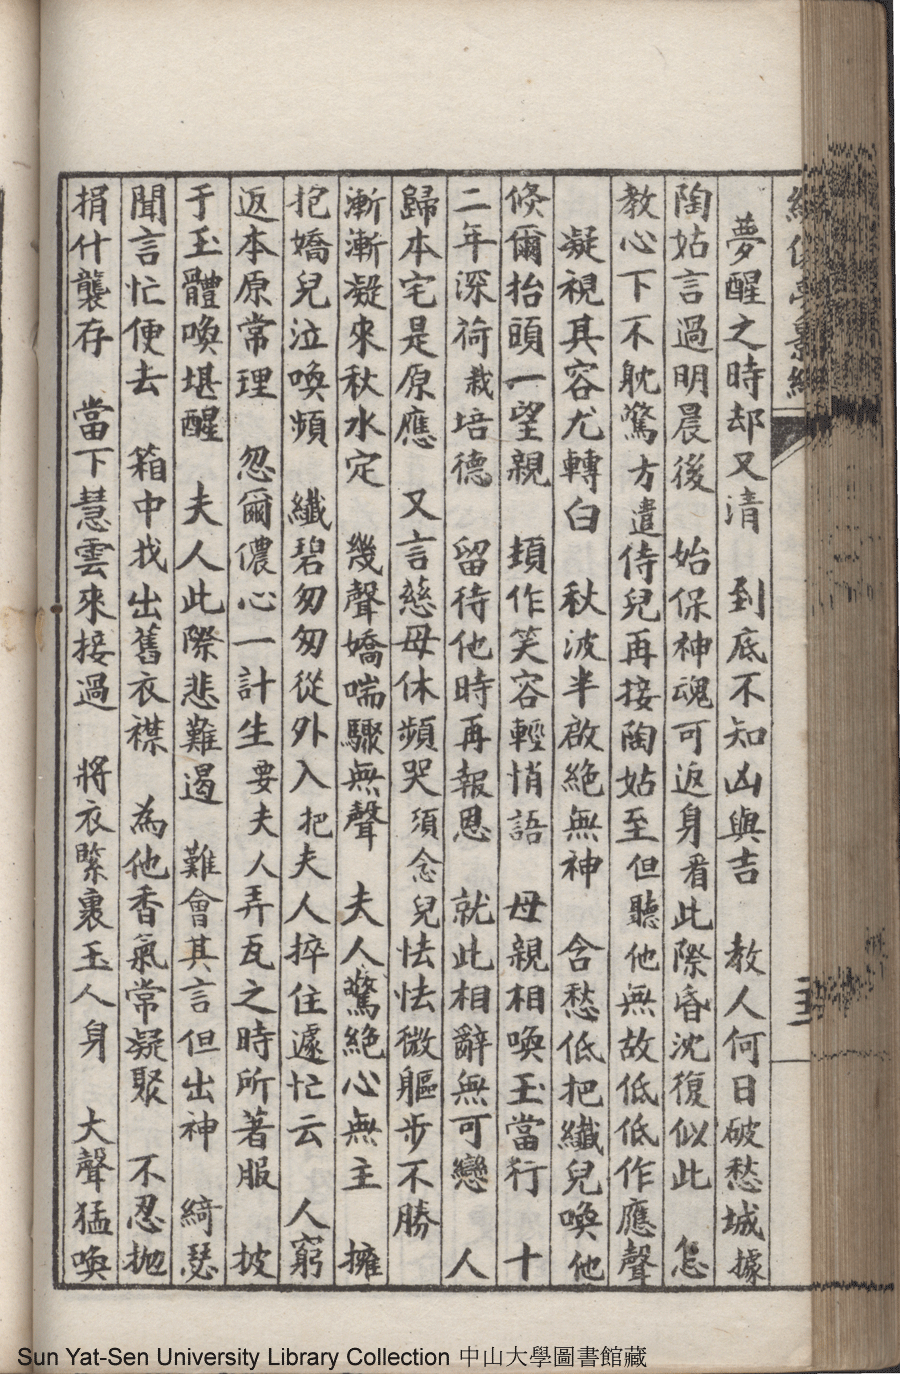 夢醒之時却又清　到底不知凶與吉　教人何日破愁城據
陶姑言過明晨後　始保神魂可返身看此際昏沈復似此　怎
教心下不躭驚方遣侍兒再接陶姑至但聽他無故低低作應聲
凝視其容尤轉白　秋波半啟絶無神　含愁低把纖兒喚他
倐爾抬頭一望親　頍作笑容輕悄語　母親相喚玉當行　十
二年深荷栽培德　留待他時再報恩　就此相辭無可戀　人
歸本宅是原應　又言慈母休頻哭須念兒怯怯微軀步不勝
漸漸凝來秋水定　幾聲嬌喘驟無聲　夫人驚絶心無主　擁
抱嬌兒泣喚頻　纖碧匆匆從外入把夫人捽住遽忙云　人窮
返本原常理　忽爾儂心一計生要夫人弄瓦之時所著服　披
于玉體喚堪醒　夫人此際悲難遏　難會其言但出神　綺瑟
聞言忙便去　箱中找出舊衣襟　為他香氣常凝聚　不忍抛
捐什襲存　當下慧雲來接過　將衣緊裹玉人身　大聲猛喚
Sun Yat-Sen University Library Collection 中山大學圖書館藏